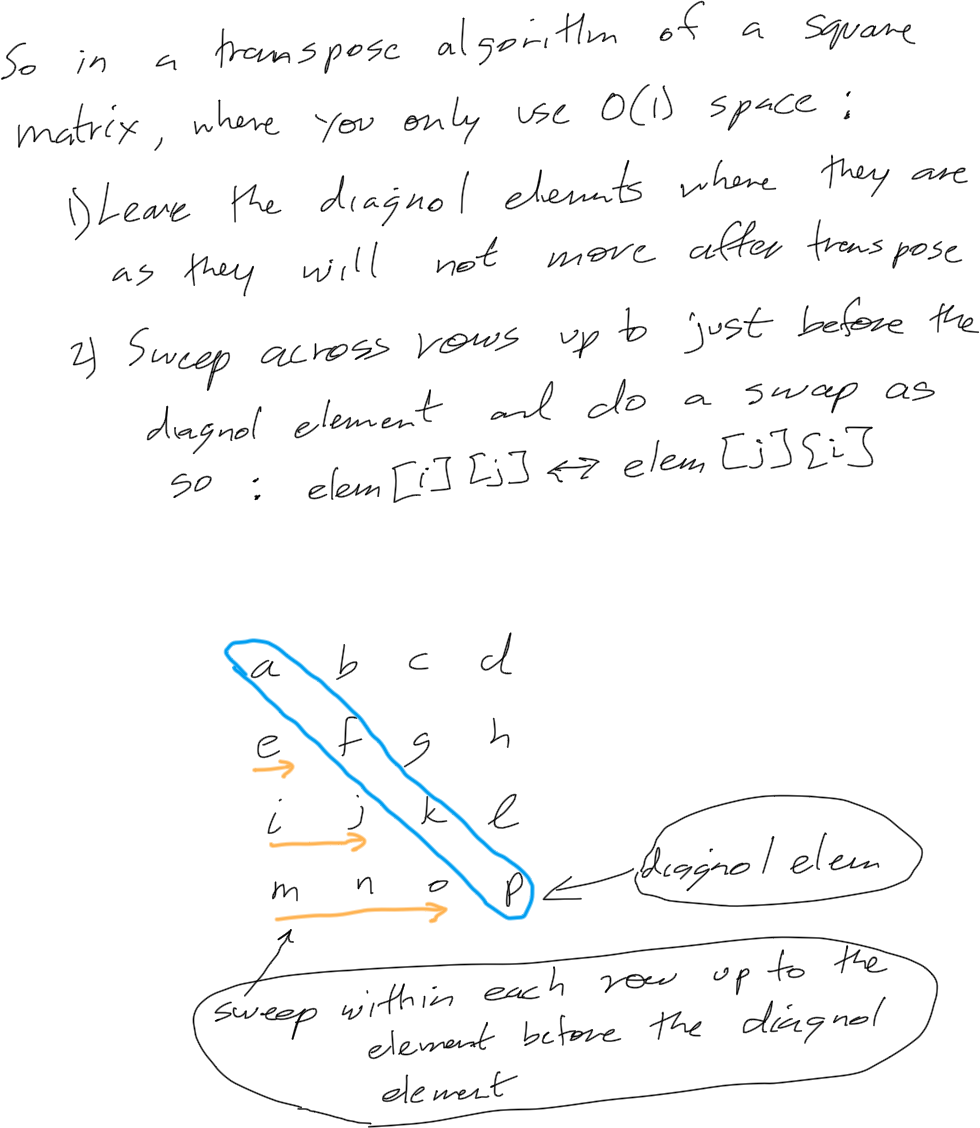 So in a transpose algorithm of a square
matrix, where you only use O(1) space :
1) Leave the diagnol elements where they are
as they will not move after transpose
2) Sweep across rows up to just before the
diagnol element and do a swap as
so : elem [i] [j] <-> elem [j] [i]
a b c d
e f g h
i j k l
m n o p
diagnol elem
sweep within each row up to the
element before the diagnol
element